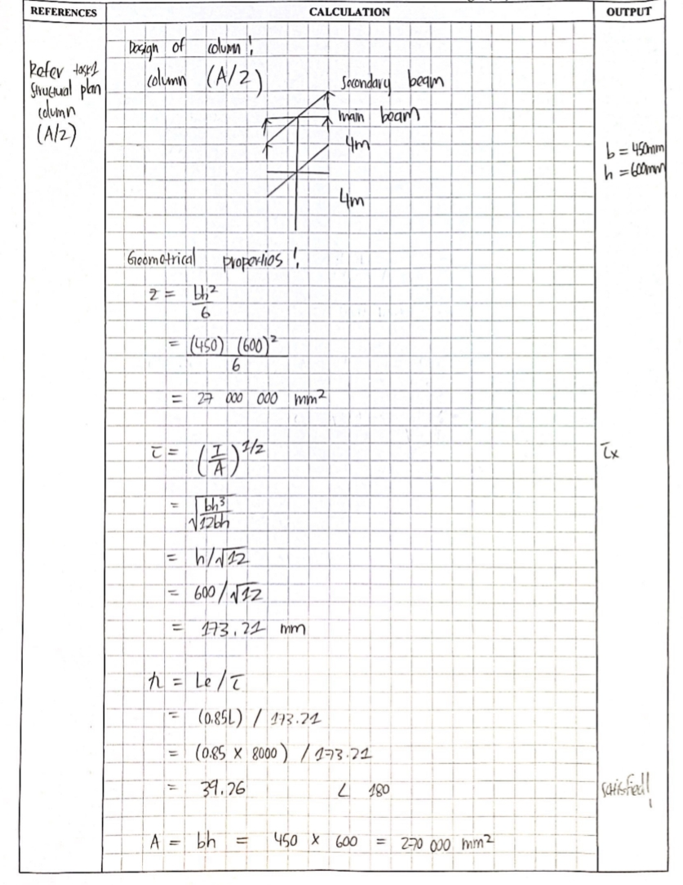 REFERENCES CALCULATION OUTPUT
Design of column!
Refer task1
Structural plan
column
(A/2)
column (A/2)
Secondary beam
main beam
4m
4m
b = 450mm
h = 600mm
Geometrical properties!
z = bh²/6
= (450) (600)²/6
= 27 000 000 mm²
τ = (I/A)^1/2
τx
= √bh³/12bh
= h/√12
= 600/√12
= 173.21 mm
λ = Le/τ
= (0.85L) / 173.21
= (0.85 × 8000) / 173.21
= 39.26 < 180
satisfied!
A = bh = 450 × 600 = 270 000 mm²